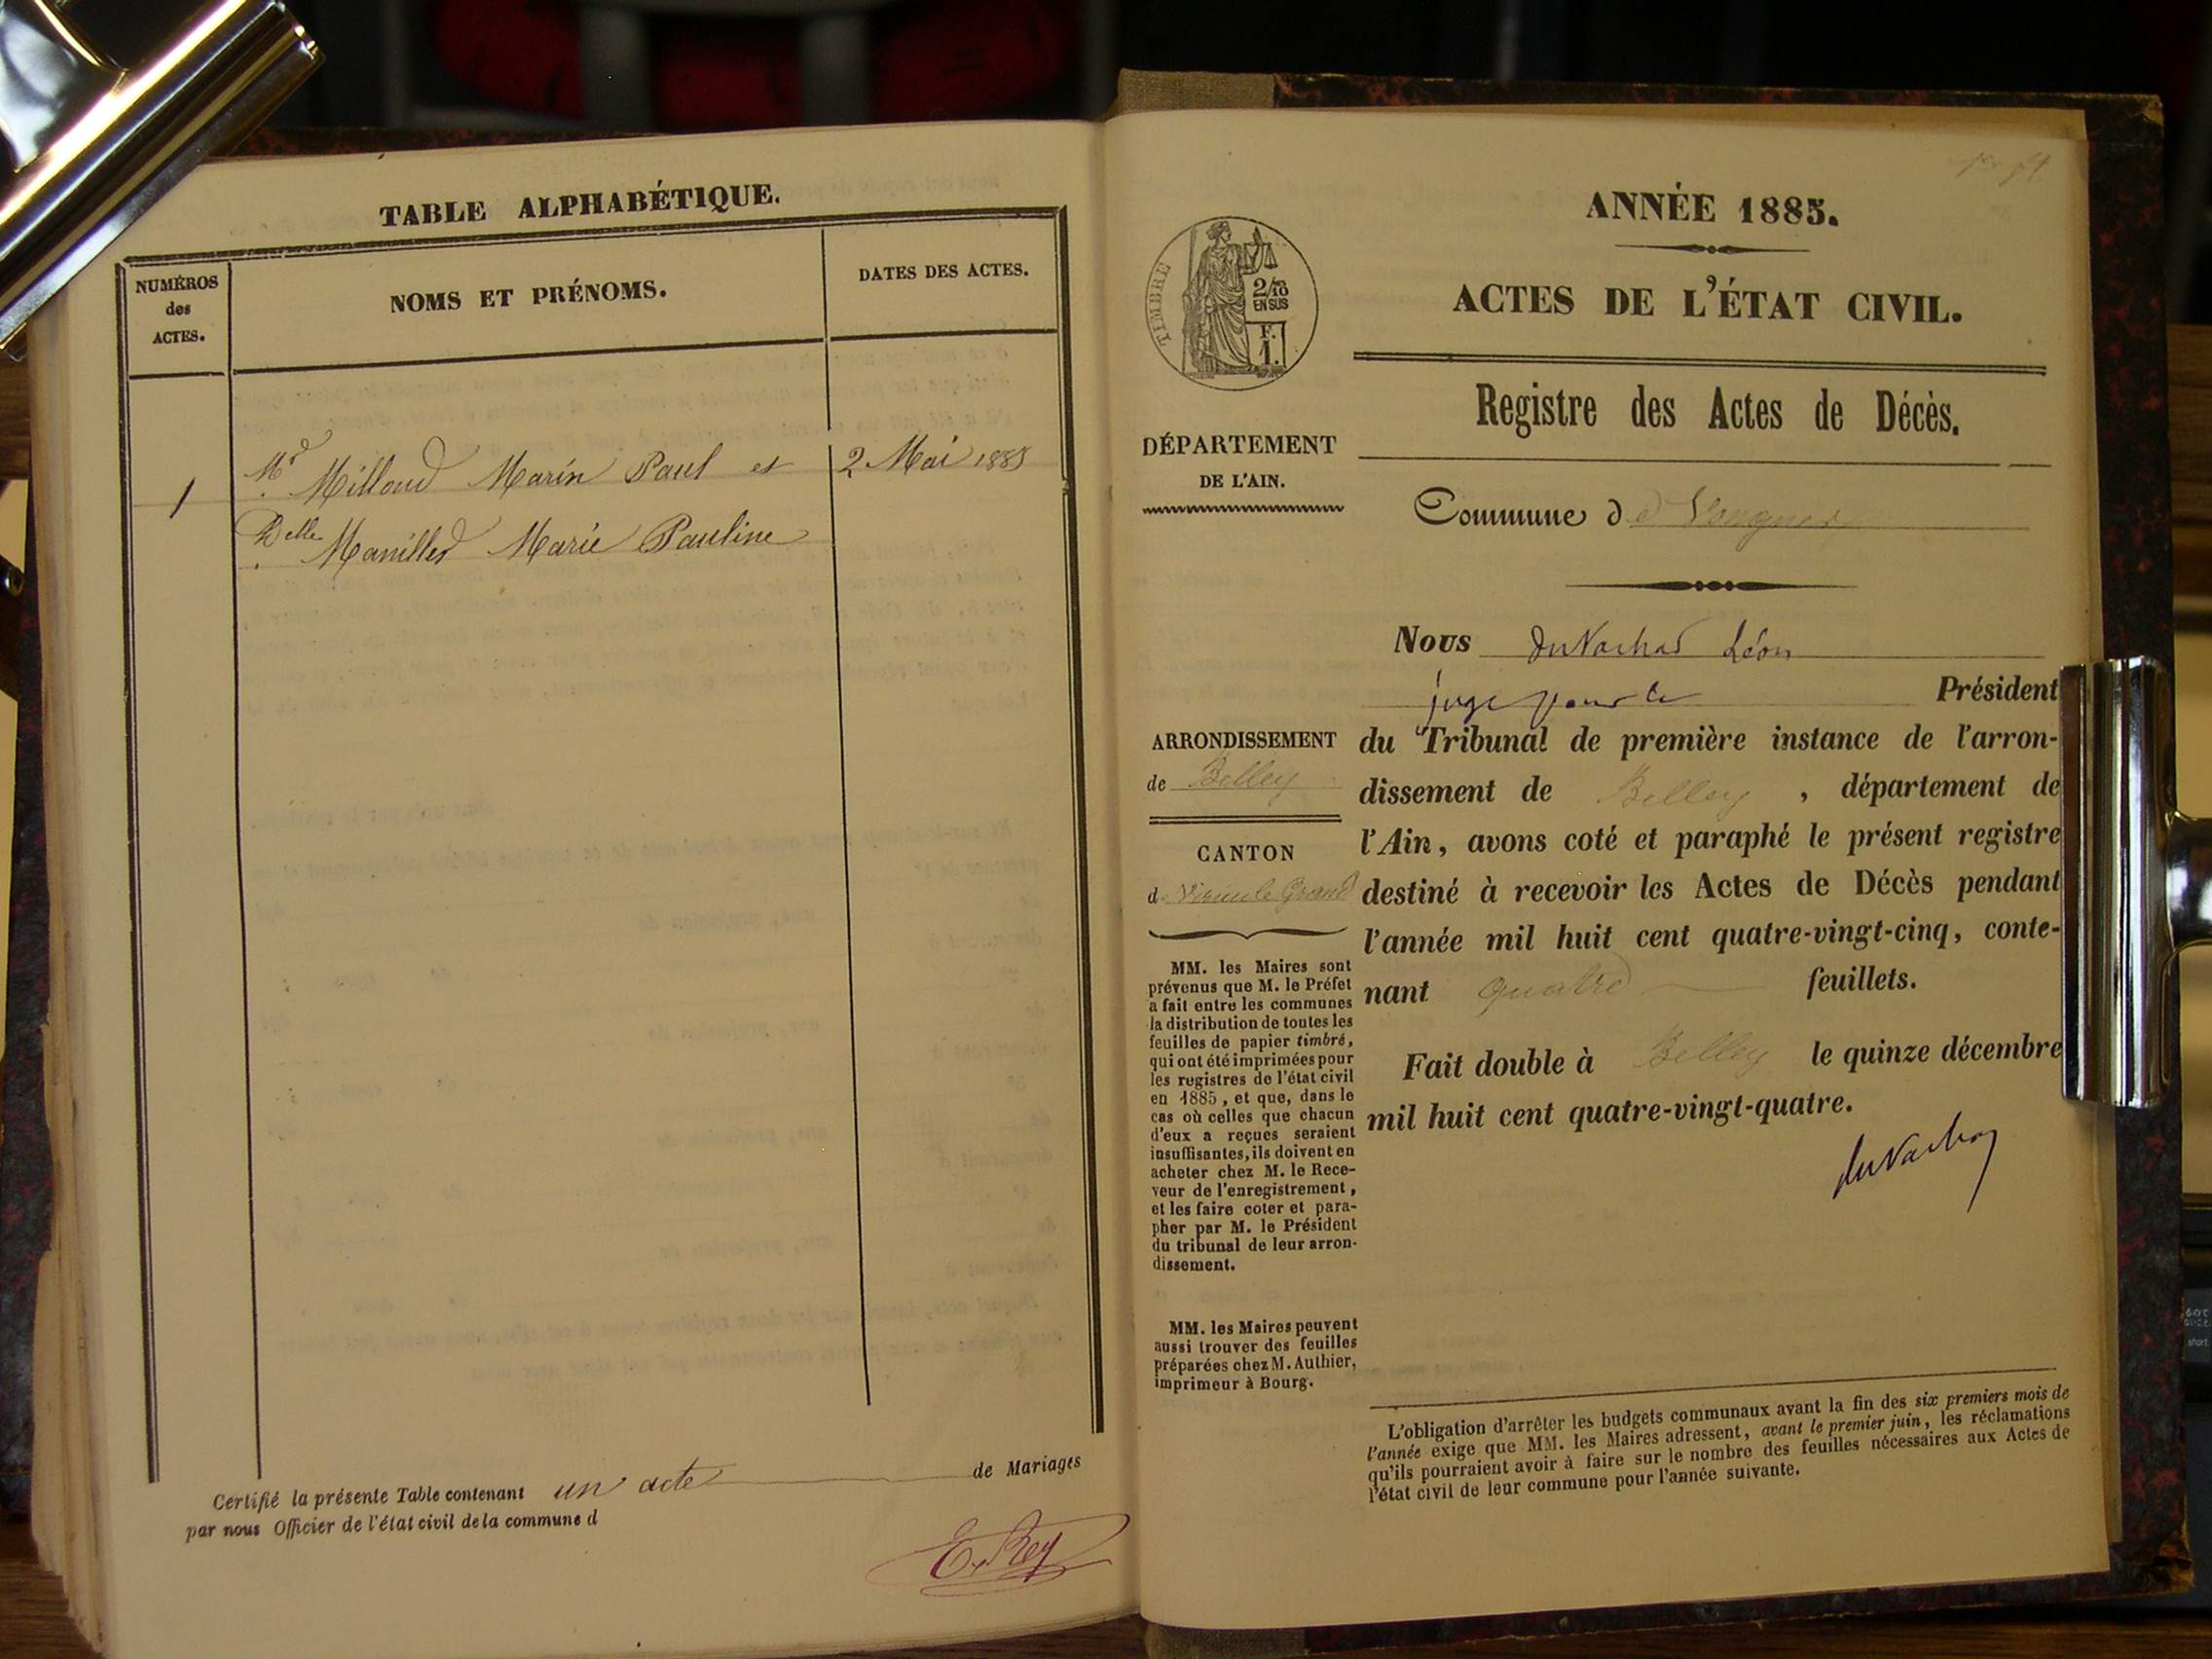 TABLE ALPHABÉTIQUE.
NUMÉROS
des
ACTES.
NOMS ET PRÉNOMS.
DATES DES ACTES.
1
Mr Milloud Marin Paul et
2 Mai 1885
Delle Manillier Marie Pauline
Certifié la présente Table contenant un acte de Mariages
par nous Officier de l'état civil de la commune d
E. Rey
ANNÉE 1885.
ACTES DE L'ÉTAT CIVIL.
TIMBRE
2/10
EN SUS
F.
1.
Registre des Actes de Décès.
DÉPARTEMENT
DE L'AIN.
Commune de Vongnes
Nous Léon
juge pour le Président
du Tribunal de première instance de l'arron-
dissement de Belley , département de
l'Ain, avons coté et paraphé le présent registre
destiné à recevoir les Actes de Décès pendant
l'année mil huit cent quatre-vingt-cinq, conte-
nant quatre feuillets.
Fait double à Belley le quinze décembre
mil huit cent quatre-vingt-quatre.
ARRONDISSEMENT
de Belley
CANTON
de Virieu le Grand
MM. les Maires sont
prévenus que M. le Préfet
a fait entre les communes
la distribution de toutes les
feuilles de papier timbré,
qui ont été imprimées pour
les registres de l'état civil
en 1885, et que, dans le
cas où celles que chacun
d'eux a reçues seraient
insuffisantes, ils doivent en
acheter chez M. le Rece-
veur de l'enregistrement,
et les faire coter et para-
pher par M. le Président
du tribunal de leur arron-
dissement.
MM. les Maires peuvent
aussi trouver des feuilles
préparées chez M. Authier,
imprimeur à Bourg.
L'obligation d'arrêter les budgets communaux avant la fin des six premiers mois de
l'année exige que MM. les Maires adressent, avant le premier juin, les réclamations
qu'ils pourraient avoir à faire sur le nombre des feuilles nécessaires aux Actes de
l'état civil de leur commune pour l'année suivante.